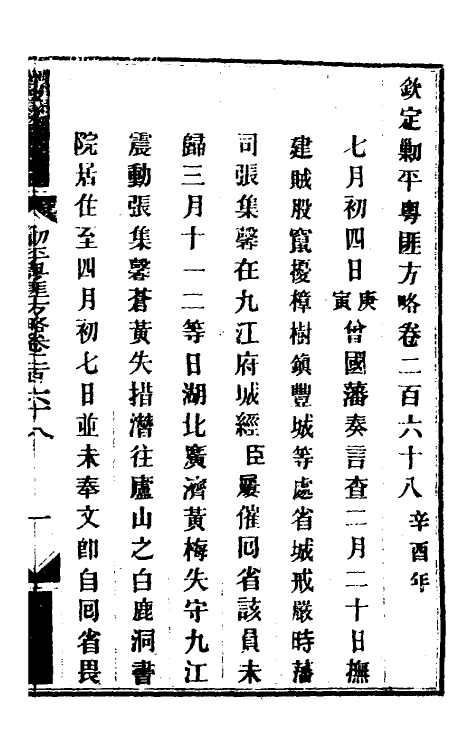 欽定剿平粵匪方略卷二百六十八 辛酉年
七月初四日庚寅曾國藩奏言查二月二十日撫
建賊股竄擾樟樹鎮豐城等處省城戒嚴時藩
司張集馨在九江府城經臣屢催囘省該員未
歸三月十一二等日湖北廣濟黃梅失守九江
震動張集馨蒼黃失措潛往廬山之白鹿洞書
院居住至四月初七日並未奉文卽自囘省畏
剿平粵匪方略卷二百六十八 一